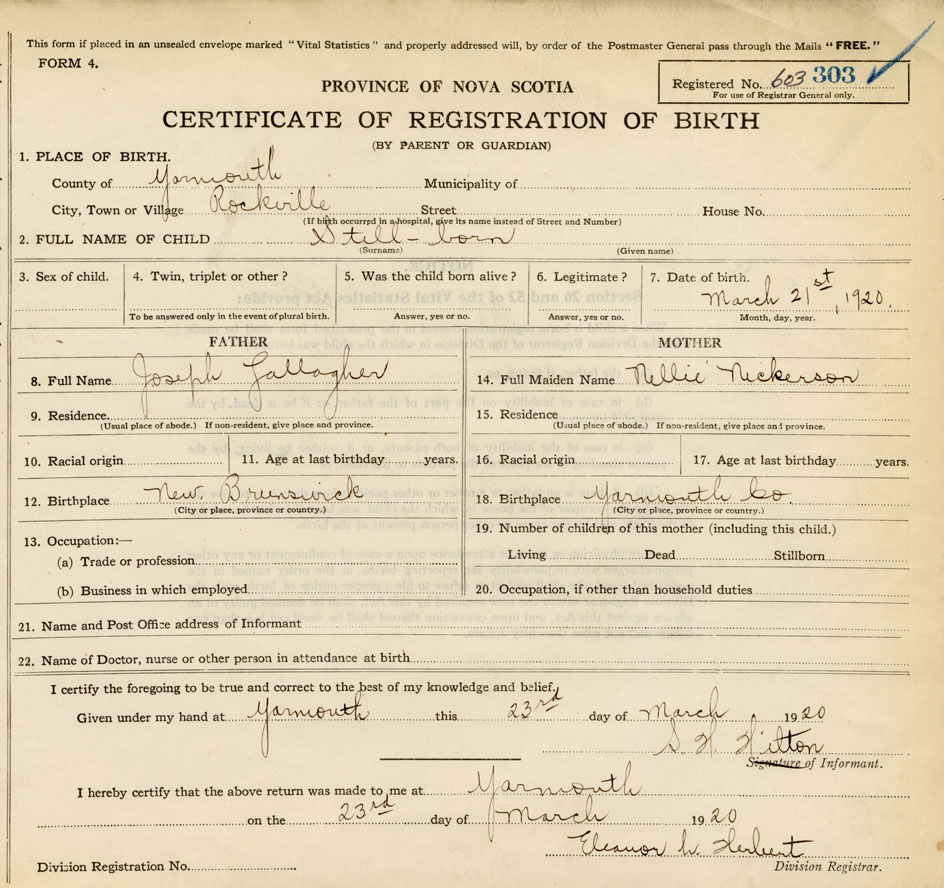 This form if placed in an unsealed envelope marked "Vital Statistics" and properly addressed will, by order of the Postmaster General pass through the Mails "FREE."
FORM 4.
Registered No. 603 303
For use of Registrar General only.
PROVINCE OF NOVA SCOTIA
CERTIFICATE OF REGISTRATION OF BIRTH
(BY PARENT OR GUARDIAN)
1. PLACE OF BIRTH.
County of Yarmouth Municipality of
City, Town or Village Rockville Street House No.
(If birth occurred in a hospital, give its name instead of Street and Number)
2. FULL NAME OF CHILD Still-born
(Surname) (Given name)
3. Sex of child. 4. Twin, triplet or other? 5. Was the child born alive? 6. Legitimate? 7. Date of birth.
March 21st, 1920.
To be answered only in the event of plural birth. Answer, yes or no. Answer, yes or no. Month, day, year.
FATHER
8. Full Name Joseph Gallagher
9. Residence.
(Usual place of abode.) If non-resident, give place and province.
10. Racial origin 11. Age at last birthday years.
12. Birthplace New Brunswick
(City or place, province or country.)
13. Occupation:—
(a) Trade or profession
(b) Business in which employed
MOTHER
14. Full Maiden Name Nellie Nickerson
15. Residence
(Usual place of abode.) If non-resident, give place and province.
16. Racial origin 17. Age at last birthday years.
18. Birthplace Yarmouth Co.
(City or place, province or country.)
19. Number of children of this mother (including this child.)
Living Dead Stillborn
20. Occupation, if other than household duties
21. Name and Post Office address of Informant
22. Name of Doctor, nurse or other person in attendance at birth
I certify the foregoing to be true and correct to the best of my knowledge and belief,
Given under my hand at Yarmouth this 23rd day of March 1920
S. H. Hilton
Signature of Informant.
I hereby certify that the above return was made to me at Yarmouth
on the 23rd day of March 1920
Eleanor W. Herbert
Division Registration No. Division Registrar.